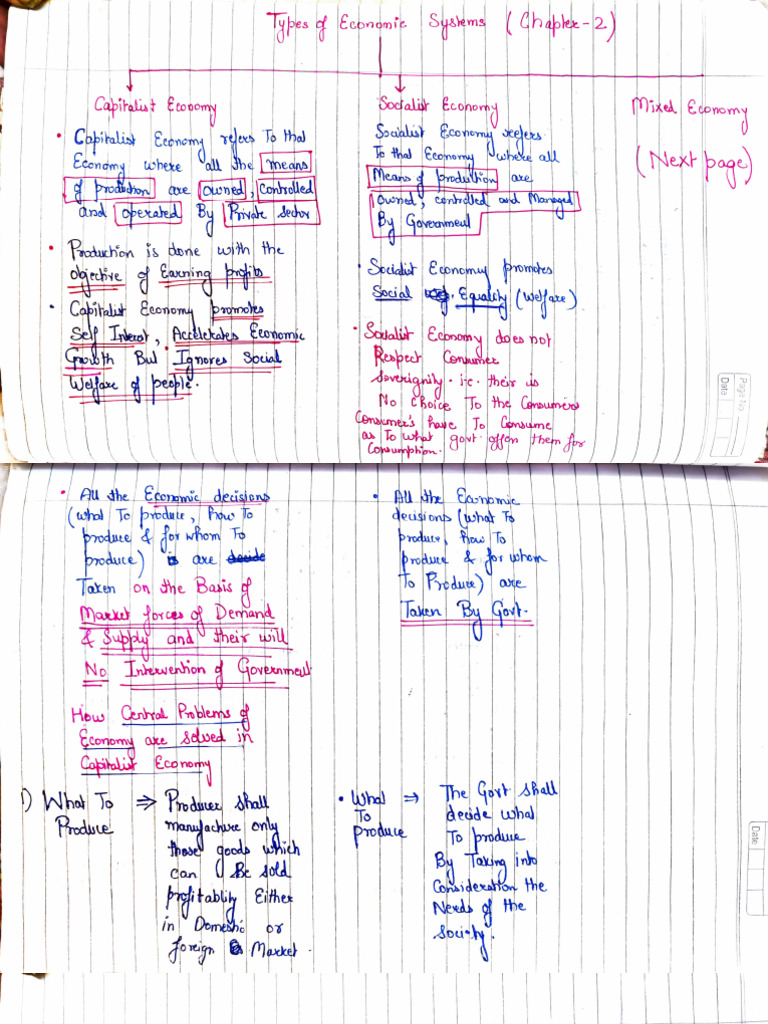 Types of Economic Systems (Chapter-2)
Capitalist Economy
• Capitalist Economy refers To that
Economy where all the means
of production are owned, controlled
and operated By Private sector
• Production is done with the
objective of Earning profits
• Capitalist Economy promotes
Self Interest, Accelerates Economic
Growth But Ignores Social
Welfare of people.
Socialist Economy
Socialist Economy refers
To that Economy where all
Means of production are
owned, controlled and Managed
By Government
• Socialist Economy promotes
Social Equality (Welfare)
• Socialist Economy does not
Respect Consumer
Soverignity. i.e. their is
No choice To the Consumers
Consumer's have To Consume
as To what govt. offen them for
Consumption.
Mixed Economy
(Next page)
Page No.
Date
• All the Economic decisions
(what To produce, how To
produce & for whom To
produce) are
Taken on the Basis of
Market forces of Demand
& Supply and their will
No Intervention of Government
How Central Problems of
Economy are solved in
Capitalist Economy
1) What To ⇒ Producer shall
Produce manufacture only
those goods which
can Be sold
profitablity Either
in Domestic or
foreign Market.
• All the Economic
decisions (what To
produce, how To
produce & for whom
To Produce) are
Taken By Govt.
• What ⇒ The Govt shall
To decide what
produce To produce
By Taking into
Consideration the
Needs of the
Society.
Date